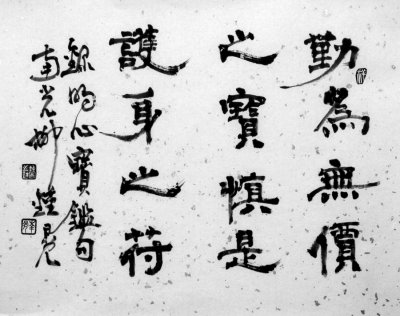 勤為無價
之寶慎是
護身之符
錄明心寶鑑句
南光